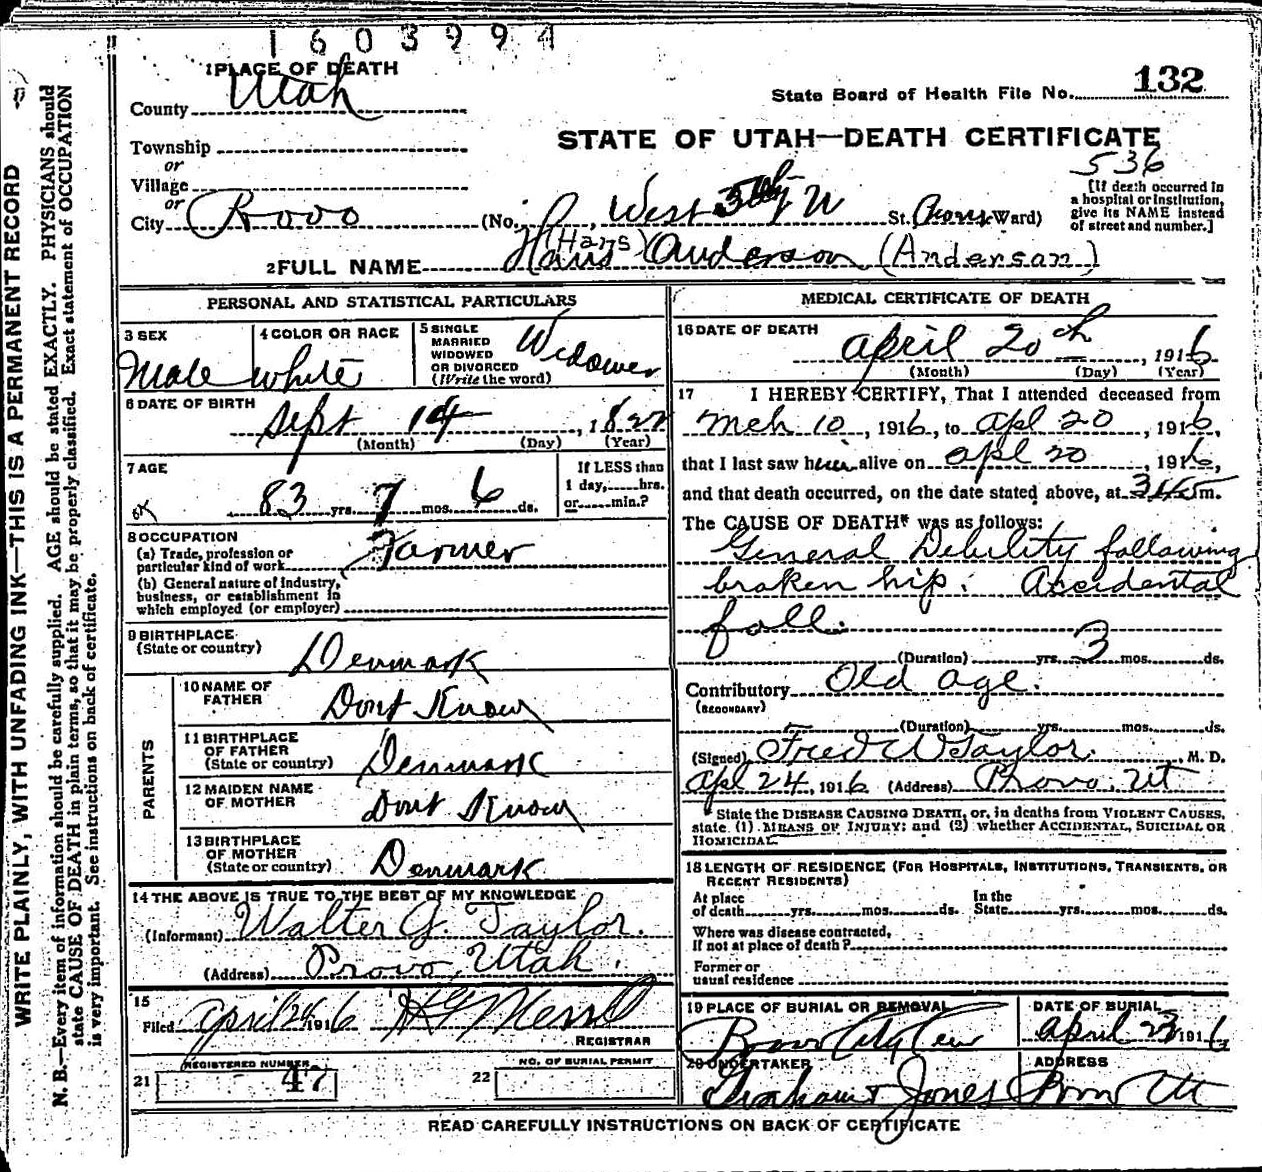 1603994
1 PLACE OF DEATH
County Utah
State Board of Health File No. 132
Township
or
Village
or
City Provo
STATE OF UTAH—DEATH CERTIFICATE
536
(No. , West 5th N St. Ward)
[If death occurred in
a hospital or institution,
give its NAME instead
of street and number.]
2 FULL NAME Hans (Hans) Anderson (Anderson)
PERSONAL AND STATISTICAL PARTICULARS
3 SEX
Male
4 COLOR OR RACE
White
5 SINGLE
MARRIED
WIDOWED
OR DIVORCED
(Write the word)
Widower
6 DATE OF BIRTH
Sept 14, 1822
(Month) (Day) (Year)
7 AGE
83 yrs. 7 mos. 6 ds.
If LESS than
1 day, hrs.
or min.?
8 OCCUPATION
(a) Trade, profession or
particular kind of work Farmer
(b) General nature of industry,
business, or establishment in
which employed (or employer)
9 BIRTHPLACE
(State or country)
Denmark
PARENTS
10 NAME OF
FATHER
Dont Know
11 BIRTHPLACE
OF FATHER
(State or country)
Denmark
12 MAIDEN NAME
OF MOTHER
Dont Know
13 BIRTHPLACE
OF MOTHER
(State or country)
Denmark
14 THE ABOVE IS TRUE TO THE BEST OF MY KNOWLEDGE
(Informant) Walter G. Taylor.
(Address) Provo, Utah.
15
Filed April 24 1916
REGISTRAR
REGISTERED NUMBER
21 47
NO. OF BURIAL PERMIT
22
MEDICAL CERTIFICATE OF DEATH
16 DATE OF DEATH
April 20th, 1916
(Month) (Day) (Year)
17 I HEREBY CERTIFY, That I attended deceased from
Mch 10, 1916, to Apl 20, 1916,
that I last saw him alive on Apl 20, 1916,
and that death occurred, on the date stated above, at 3:45 m.
The CAUSE OF DEATH* was as follows:
General Debility following
broken hip. Accidental
fall.
(Duration) yrs. 3 mos. ds.
Contributory Old age.
(SECONDARY)
(Duration) yrs. mos. ds.
(Signed) Fred W Taylor. , M. D.
Apl 24, 1916 (Address) Provo, Ut
* State the DISEASE CAUSING DEATH, or, in deaths from VIOLENT CAUSES,
state (1) MEANS OF INJURY; and (2) whether ACCIDENTAL, SUICIDAL OR
HOMICIDAL.
18 LENGTH OF RESIDENCE (FOR HOSPITALS, INSTITUTIONS, TRANSIENTS, OR
RECENT RESIDENTS)
At place
of death yrs. mos. ds.
In the
State yrs. mos. ds.
Where was disease contracted,
if not at place of death?
Former or
usual residence
19 PLACE OF BURIAL OR REMOVAL
Provo City Cem
DATE OF BURIAL
April 23 1916
20 UNDERTAKER
Graham & Jones
ADDRESS
Provo Ut
READ CAREFULLY INSTRUCTIONS ON BACK OF CERTIFICATE
WRITE PLAINLY, WITH UNFADING INK—THIS IS A PERMANENT RECORD
N. B.—Every item of information should be carefully supplied. AGE should be stated EXACTLY. PHYSICIANS should
state CAUSE OF DEATH in plain terms, so that it may be properly classified. Exact statement of OCCUPATION
is very important. See instructions on back of certificate.